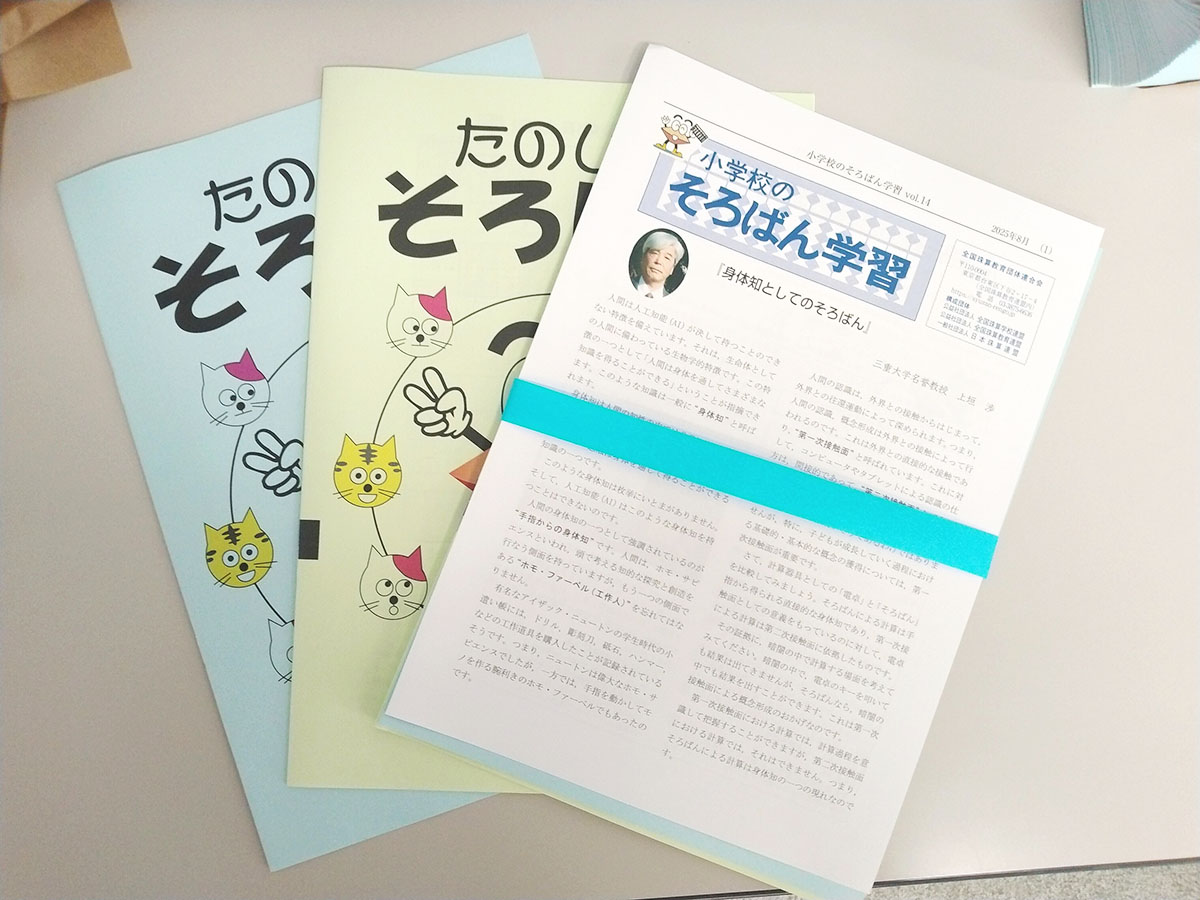 たの
そろ
たのし
そろ
小学校のそろばん学習 vol.14
2025年8月 (1)
小学校の
そろばん学習
全国珠算教育団体連合会
〒110-0004
構成団体
公益社団法人 全国珠算学校連盟
公益社団法人 全国珠算教育連盟
一般社団法人 日本珠算連盟
『身体知としてのそろばん』
三重大学名誉教授 上垣 渉
人間は人工知能(AI)が決して持つことのでき
ない特徴を備えています。それは、生命体として
の人間に備わっている生物学的特徴です。この特
徴の一つとして「人間は身体を通してさまざまな
知識を得ることができる」ということが指摘でき
ます。このような知識は一般に“身体知”と呼ば
れます。
知識の一つです。
このような身体知は枚挙にいとまがありません。
そして、人工知能(AI)はこのような身体知を持
つことはできないのです。
人間の身体知の一つとして強調されているのが
“手指からの身体知”です。人間は、ホモ・サピ
エンスといわれ、頭で考える知的な探究と創造を
行なう側面を持っていますが、もう一つの側面で
ある“ホモ・ファーベル(工作人)”を忘れてはな
りません。
有名なアイザック・ニュートンの学生時代の小
遣い帳には、ドリル、彫刻刀、砥石、ハンマー、
などの工作道具を購入したことが記録されている
そうです。つまり、ニュートンは偉大なホモ・サ
ピエンスでしたが、一方では、手指を動かしてモ
ノを作る腕利きのホモ・ファーベルでもあったの
です。
人間の認識は、外界との接触からはじまって、
外界との往還運動によって深められます。つまり、
人間の認識、概念形成は外界との接触によって行
われるのです。これは外界との直接的な接触であ
り、“第一次接触面”と呼ばれています。これに対
して、コンピュータやタブレットによる認識の仕
方は、間接的であって
せんが、特に、子どもが成長していく過程におけ
る基礎的・基本的な概念の獲得については、第一
次接触面が重要です。
さて、計算器具としての「電卓」と「そろばん」
を比較してみましょう。そろばんによる計算は手
指から得られる直接的な身体知であり、第一次接
触面としての意義をもっているのに対して、電卓
による計算は第二次接触面に依拠したものです。
その証拠に、暗闇の中で計算する場面を考えて
みてください。暗闇の中で、電卓のキーを叩いて
も結果は出てきませんが、そろばんなら、暗闇の
中でも結果を出すことができます。これは第一次
接触面による概念形成のおかげなのです。
第一次接触面における計算では、計算過程を意
識して把握することができますが、第二次接触面
における計算では、それはできません。つまり、
そろばんによる計算は身体知の一つの現れなので
す。